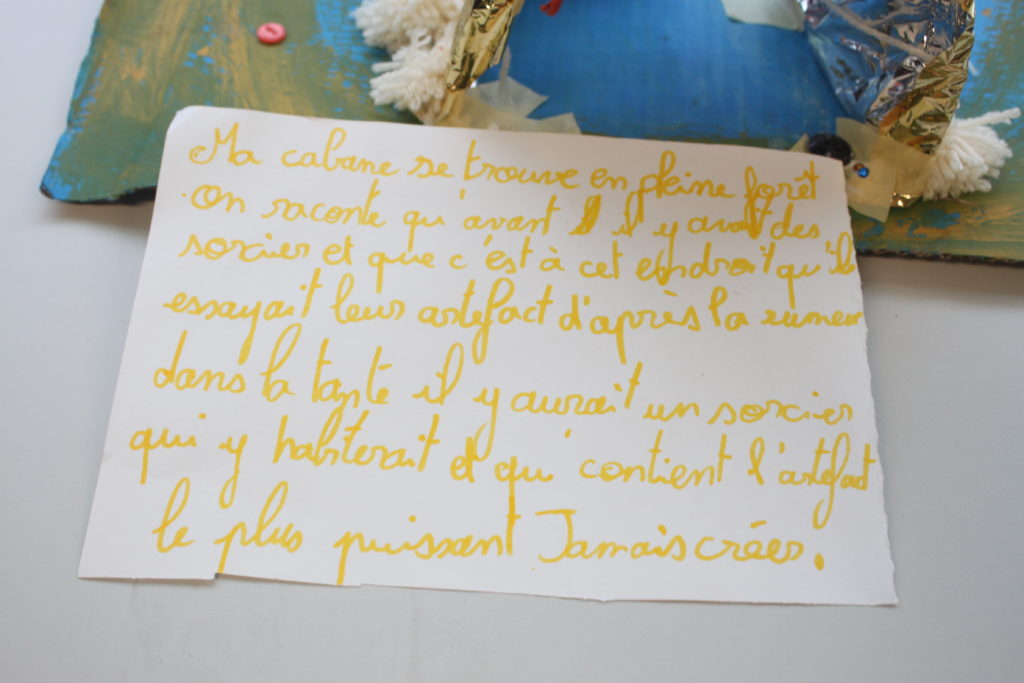 Ma cabane se trouve en pleine forêt
On raconte qu'avant il y avait des
sorcier et que c'est à cet endroit qu'ils
essayait leur artefact d'après la rumeur
dans la tante il y aurait un sorcier
qui y habiterait et qui contient l'artefact
le plus puissant Jamais créer.